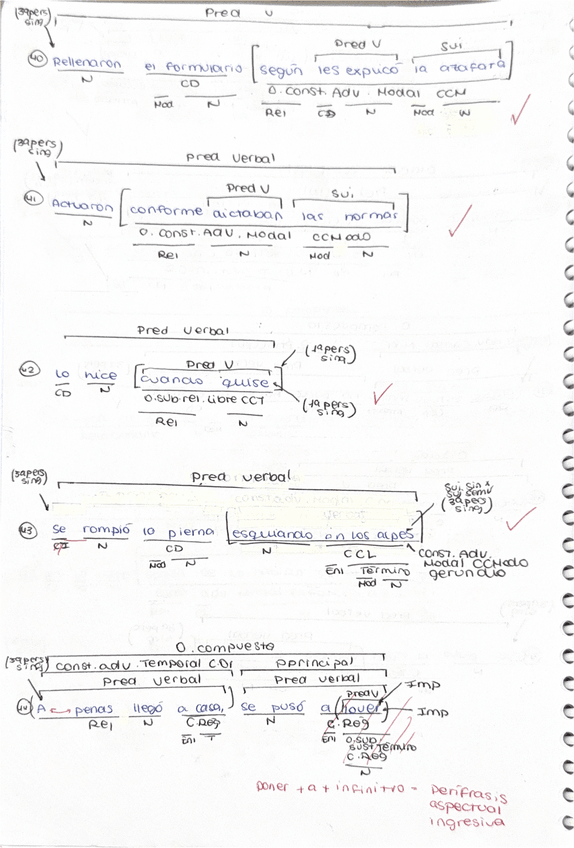 Pred V
(3ªpers sing)
Pred V Suj
40 Rellenaron el formulario [según les explicó la azafata]
N CD O. Const. Adv. Modal CCM
Mod N Rel CD N Mod N
(3ªpers sing)
Pred Verbal
Pred V Suj
41 Actuaron [conforme dictaban las normas]
N O. Const. ADV. Modal CCModo
Rel N Mod N
Pred Verbal
Pred V (1ªpers sing)
42 Lo hice [cuando quise]
CD N O.sub.rel.libre CCT (1ªpers sing)
Rel N
(3ªpers sing)
Pred Verbal
(3ªpers sing)
43 Se rompió la pierna [esquiando en los alpes]
CI N CD N CCL Const. Adv.
Mod N Enl Término Modal CCModo
Mod N gerundio
O. Compuesta
(3ªpers sing) Const. adv. Temporal CDr PPrincipal
Pred Verbal Pred Verbal
Pred V Imp
44 (Apenas llegó a casa,) se pusó a (llover) Imp
Rel N C.Reg N C.Reg
Enl T Enl O.Sub
Sust. Término
C.Reg
N
Poner + a + infinitivo = Perífrasis
aspectual
ingresiva